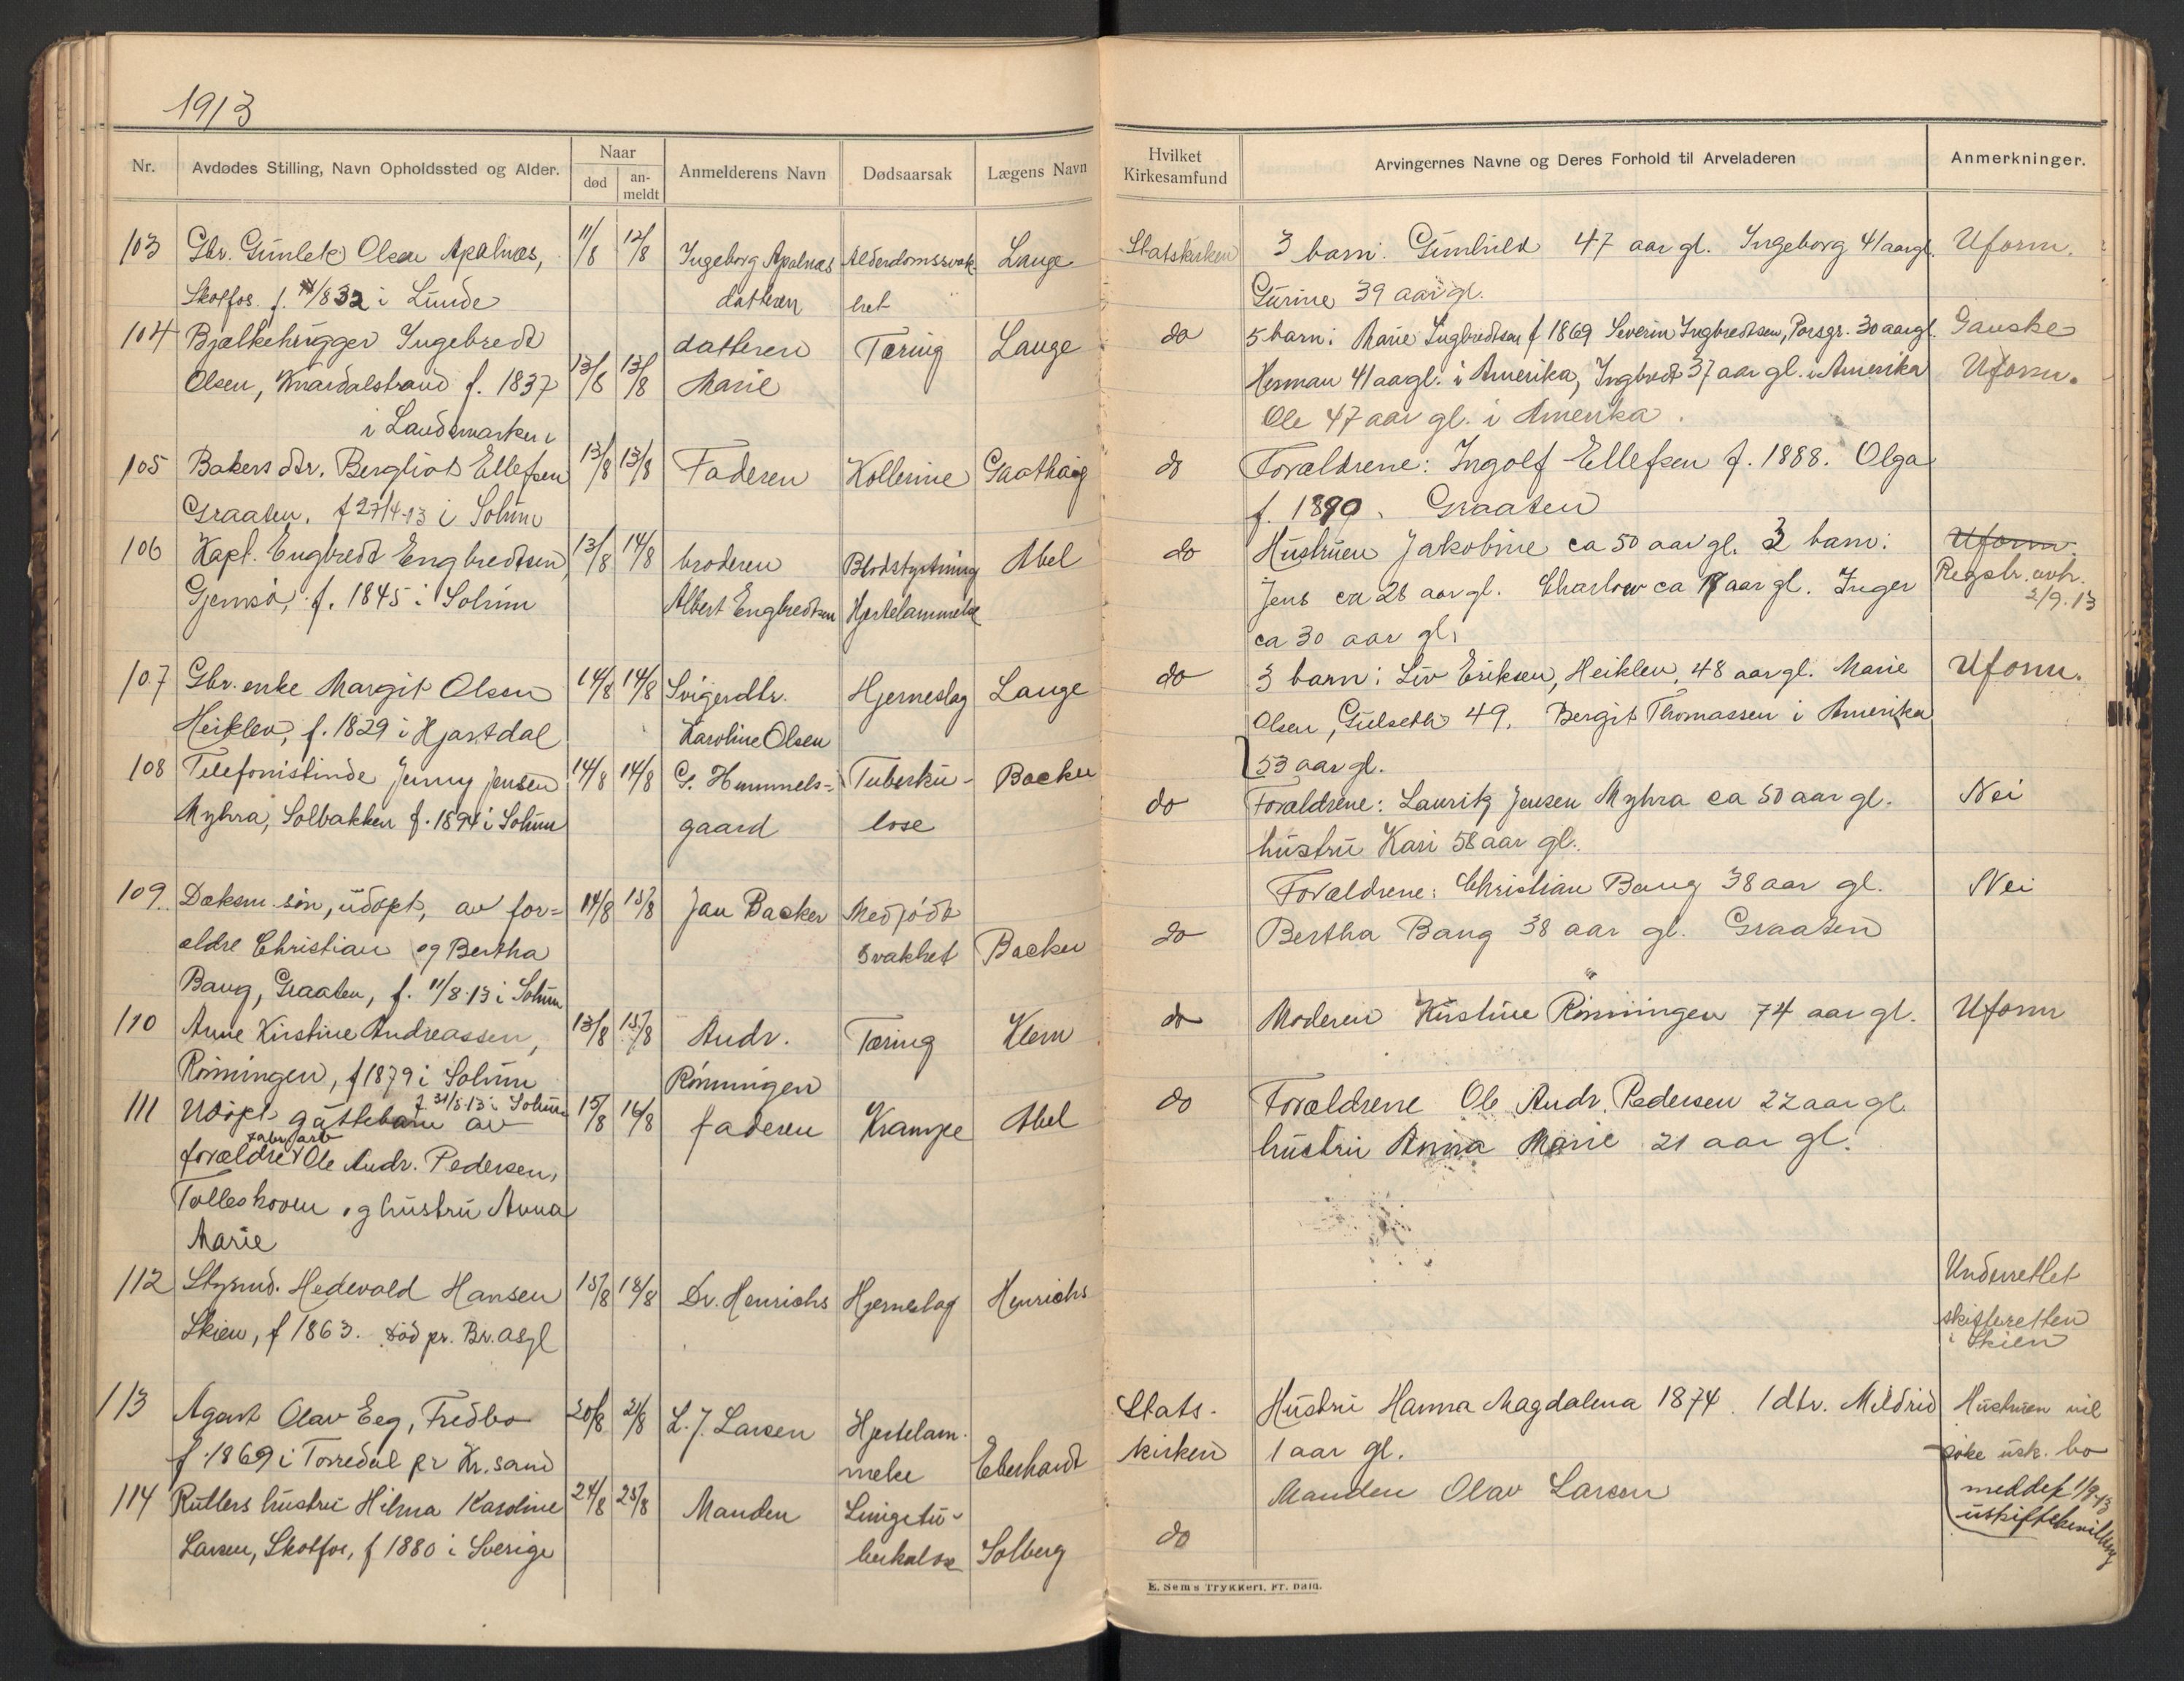 1913
Nr. Avdødes Stilling, Navn Opholdssted og Alder. Naar død an-meldt Anmelderens Navn Dødsaarsak Lægens Navn
103 Gbr. Gunlek Olsen Apalnæs, 11/8 12/8 Ingeborg Apalnæs Alderdomssvak- Lange
Skotfos. f. /8 32 i Lunde datteren het
104 Bjælkehugger Ingebredt datteren Tæring Lange
Olsen, Knardalstrand f. 1837 13/8 13/8 Marie
i Landsmarken
105 Bakers dtr. Bergliot Ellefsen 13/8 13/8 Faderen Kollerine Gaathaug
Graaten. f 27/4-13 i Solum
106 Kapt. Engbredt Engbredtsen, 13/8 14/8 broderen Blodstyrtning Abel
Gjemsø, f. 1845 i Solum Albert Engbredtsen Hjertelammelse
107 Gbr. enke Margit Olsen 14/8 14/8 Svigerdtr. Hjerneslag Lange
Heiklev, f. 1829 i Hjartdal Karoline Olsen
108 Telefonistinde Jenny Jensen 14/8 14/8 G. Hummels- Tuberku- Backer
Myhra, Solbakken f. 1894 i Solum gaard lose
109 Doksm. søn, udøpt, av for- 14/8 15/8 Jan Backer Medfödt
ældre Christian og Bertha svakhet Backer
Bang, Graaten, f. 11/8-13 i Solum
110 Anne Kirstine Andreassen, 13/8 15/8 Andr. Tæring Klem
Rönningen, f 1879 i Solum Rönningen
111 Udöpt guttebarn av f. 31/5-13 i Solum 15/8 16/8 faderen Krampe Abel
forældre fabr.arb Ole Andr. Pedersen,
Tolleskoven og hustru Anna
Marie
112 Styrmd. Hedevald Hansen 15/8 18/8 Dr. Henrichs Hjerneslag Henrichs
Skien, f 1863. död pr. Br.asyl
113 Agent Olav Eeg, Fredbo 20/8 21/8 L. J. Larsen Hjertelam-
f. 1869 i Torredal pr Kr.sand melse Eberhardt
114 Rutlers hustru Hilma Karoline 24/8 25/8 Manden Lungetu-
Larsen, Skotfos, f 1880 i Sverige berkulose Solberg
Hvilket Kirkesamfund Arvingernes Navne og Deres Forhold til Arveladeren Anmerkninger.
Statskirken 3 barn: Gunhild 47 aar gl. Ingeborg 41 aar gl. Uform.
Gurine 39 aar gl.
do 5 barn: Marie Ingbredtsen f 1869 Severin Ingbredtsen, Porsgr. 30 aar gl. Ganske
Herman 41 aar gl. i Amerika, Ingbredt 37 aar gl. i Amerika Uform.
Ole 47 aar gl. i Amerika.
do Forældrene: Ingolf Ellefsen f. 1888. Olga
f. 1890. Graaten
do Hustruen Jakobine ca 50 aar gl. 3 barn: Uform.
Jens ca 28 aar gl. Charlow ca aar gl. Inger Registr. avh.
ca 30 aar gl. 2/9.13
do 3 barn: Liv Eriksen, Heiklev, 48 aar gl. Marie Uform.
Olsen, Gulseth 49. Bergit Thomassen i Amerika
53 aar gl.
do Forældrene: Lauritz Jensen Myhra ca 50 aar gl. Nei
hustru Kari 58 aar gl.
Forældrene: Christian Bang 38 aar gl. Nei
do Bertha Bang 38 aar gl. Graaten
do Moderen Kirstine Rönningen 74 aar gl. Uform
do Forældrene Ole Andr. Pedersen 22 aar gl.
hustru Anna Marie 21 aar gl.
Underrettet
skifteretten
i Skien
Stats- Hustru Hanna Magdalena 1874. 1 dtr. Mildrid Hustruen vil
kirken 1 aar gl. søke usk. bo
Manden Olav Larsen meddelt 1/9-13
do uskiftebevilling
E. Sem's Trykkeri, Fr. hald.